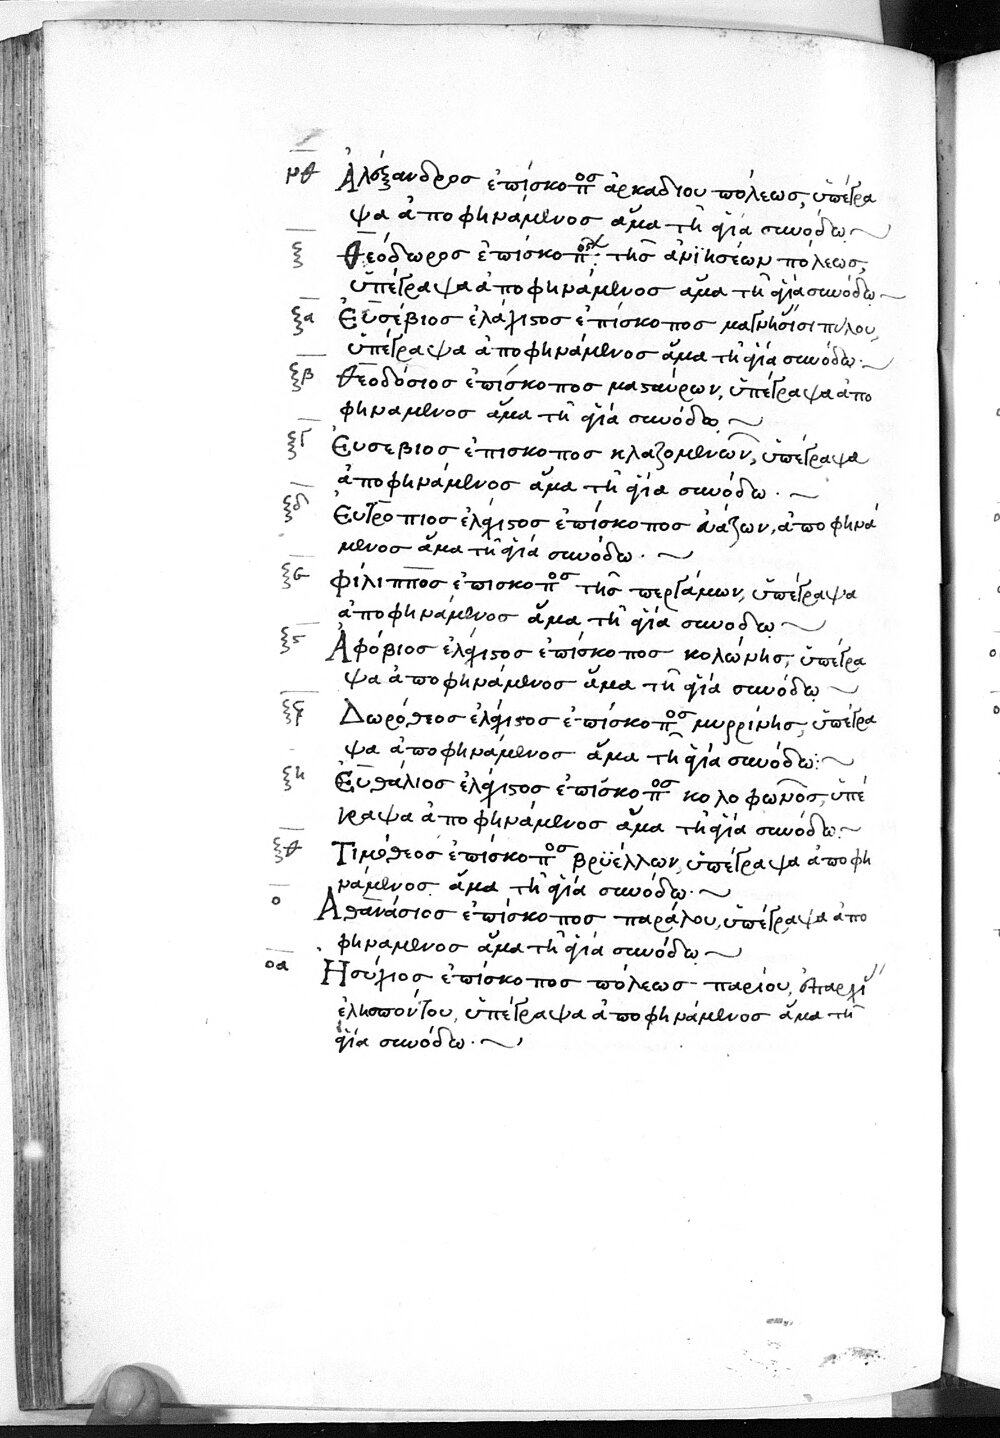 νθ Ἀλέξανδρος ἐπίσκοπος ἀρκαδίου πόλεως, ὑπέγρα
ψα ἀποφηνάμενος ἅμα τῆ ἁγία συνόδω
ξ Θεόδωρος ἐπίσκοπος τῆς ἀνϊησέων πόλεως,
ὑπέγραψα ἀποφηνάμενος ἅμα τῆ ἁγία συνόδω
ξα Εὐσέβιος ἐλάχιστος ἐπίσκοπος μαγνησίας σιπύλου,
ὑπέγραψα ἀποφηνάμενος ἅμα τῆ ἁγία συνόδω.
ξβ Θεοδόσιος ἐπίσκοπος μασταύρων, ὑπέγραψα ἀπο
φηνάμενος ἅμα τῆ ἁγία συνόδω
ξγ Εὐσεβιος ἐπισκοπος κλαζομενῶν, ὑπέγραψα
ἀποφηνάμενος ἅμα τῆ ἁγία συνόδω.
ξδ Εὐτρόπιος ἐλάχιστος ἐπίσκοπος ἀυάζων, ἀποφηνά
μενος ἅμα τῆ ἁγία συνόδω.
ξε φίλιππος ἐπισκοπος τῆς περγάμων, ὑπέγραψα
ἀποφηνάμενος ἅμα τῆ ἁγία συνοδω
ξς Ἀφόβιος ἐλάχιστος ἐπίσκοπος κολώνης, ὑπέγρα
ψα ἀποφηνάμενος ἅμα τῆ ἁγία συνόδω
ξζ Δωρόθεος ἐλάχιστος ἐπίσκοπος μυρρίνης, ὑπέγρα
ψα ἀποφηνάμενος ἅμα τῆ ἁγία συνόδω:
ξη Εὐθάλιος ἐλάχιστος ἐπίσκοπος κολοφωνος, ὑπέ
γραψα ἀποφηνάμενος ἅμα τῆ ἁγία συνόδω.
ξθ Τιμόθεος ἐπίσκοπος βρϋέλλων, ὑπέγραψα ἀποφη
νάμενος ἅμα τῆ ἁγία συνόδω.
ο Ἀθανάσιος ἐπίσκοπος παράλου, ὑπέγραψα ἀπο
φηνάμενος ἅμα τῆ ἁγία συνόδω
οα Ἡσύχιος ἐπίσκοπος πόλεως παρίου, ἐπαρχί
ἐλησπόντου, ὑπέγραψα ἀποφηνάμενος ἅμα τῆ
ἁγία συνόδω.